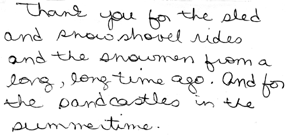 Thank you for the sled
and snow shovel rides
and the snowmen from a
long, long time ago. And for
the sandcastles in the
summertime.